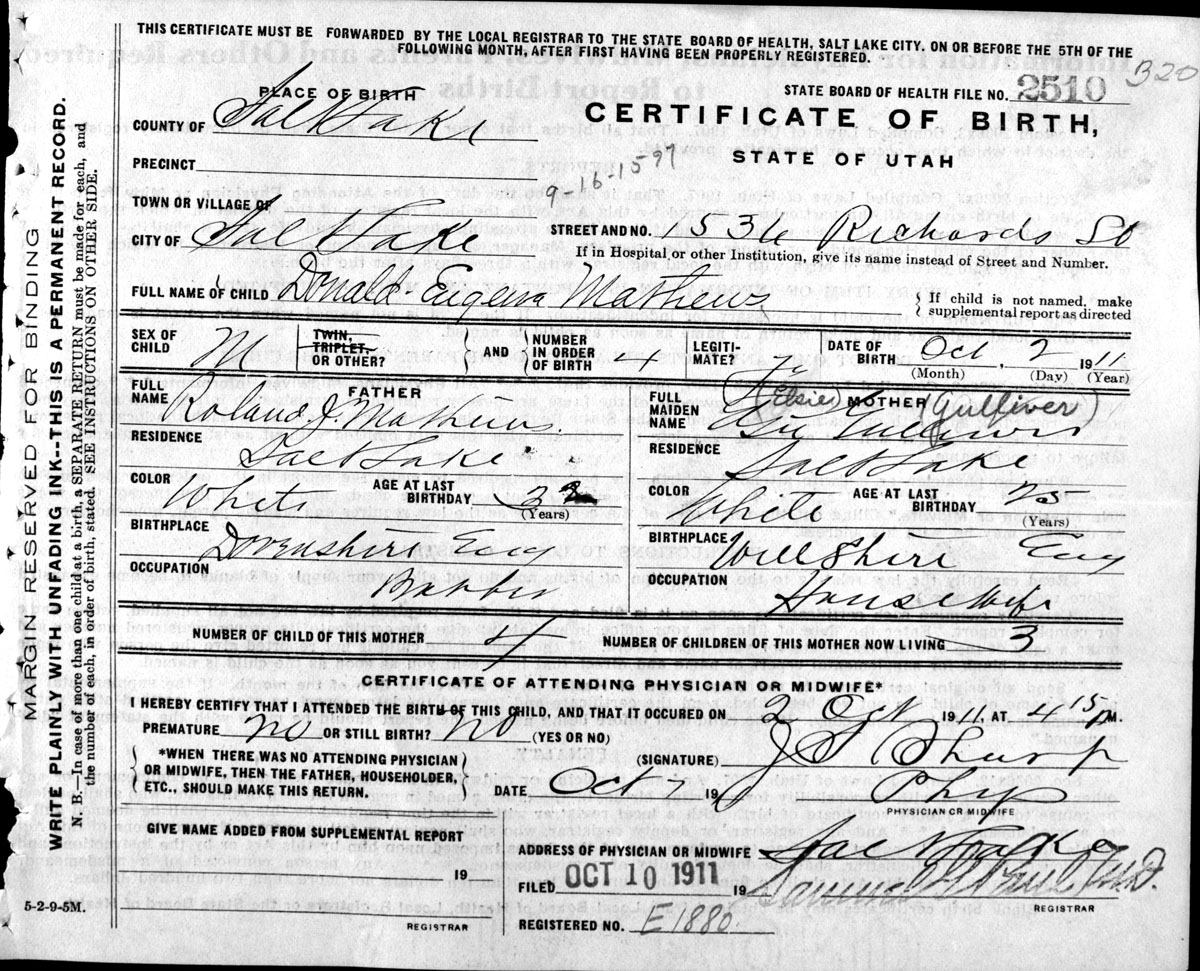 THIS CERTIFICATE MUST BE FORWARDED BY THE LOCAL REGISTRAR TO THE STATE BOARD OF HEALTH, SALT LAKE CITY, ON OR BEFORE THE 5TH OF THE
FOLLOWING MONTH, AFTER FIRST HAVING BEEN PROPERLY REGISTERED.
B20
STATE BOARD OF HEALTH FILE NO. 2510
PLACE OF BIRTH
COUNTY OF Salt Lake
CERTIFICATE OF BIRTH,
STATE OF UTAH
PRECINCT
9-16-1597
TOWN OR VILLAGE OF
CITY OF Salt Lake
STREET AND NO. 1536 Richards St
If in Hospital or other Institution, give its name instead of Street and Number.
FULL NAME OF CHILD Donald Eugene Mathews
If child is not named, make
supplemental report as directed
SEX OF CHILD M
TWIN, TRIPLET, OR OTHER?
AND
NUMBER IN ORDER OF BIRTH 4
LEGITI- MATE?
DATE OF BIRTH Oct 2 1911
(Month) (Day) (Year)
FATHER
FULL NAME Roland J. Mathews
RESIDENCE
Salt Lake
COLOR White
AGE AT LAST BIRTHDAY 32
(Years)
BIRTHPLACE
Devenshire Eng
OCCUPATION
Barber
MOTHER
FULL MAIDEN NAME (Elsie) (Gulliver)
RESIDENCE
Salt Lake
COLOR White
AGE AT LAST BIRTHDAY
(Years)
BIRTHPLACE Willshire Eng
OCCUPATION
House Wife
NUMBER OF CHILD OF THIS MOTHER 4
NUMBER OF CHILDREN OF THIS MOTHER NOW LIVING 3
CERTIFICATE OF ATTENDING PHYSICIAN OR MIDWIFE*
I HEREBY CERTIFY THAT I ATTENDED THE BIRTH OF THIS CHILD, AND THAT IT OCCURED ON 2 Oct 1911 AT 4 15 P M.
PREMATURE No OR STILL BIRTH? No (YES OR NO)
*WHEN THERE WAS NO ATTENDING PHYSICIAN
OR MIDWIFE, THEN THE FATHER, HOUSEHOLDER,
ETC., SHOULD MAKE THIS RETURN.
(SIGNATURE) Sharp
DATE Oct 7 19
Phys
PHYSICIAN OR MIDWIFE
GIVE NAME ADDED FROM SUPPLEMENTAL REPORT
19
REGISTRAR
ADDRESS OF PHYSICIAN OR MIDWIFE Salt Lake
FILED OCT 10 1911 19
REGISTRAR
REGISTERED NO. E1880
5-2-9-5M.
MARGIN RESERVED FOR BINDING
WRITE PLAINLY WITH UNFADING INK--THIS IS A PERMANENT RECORD.
N. B.—In case of more than one child at a birth, a SEPARATE RETURN must be made for each, and
the number of each, in order of birth, stated. SEE INSTRUCTIONS ON OTHER SIDE.